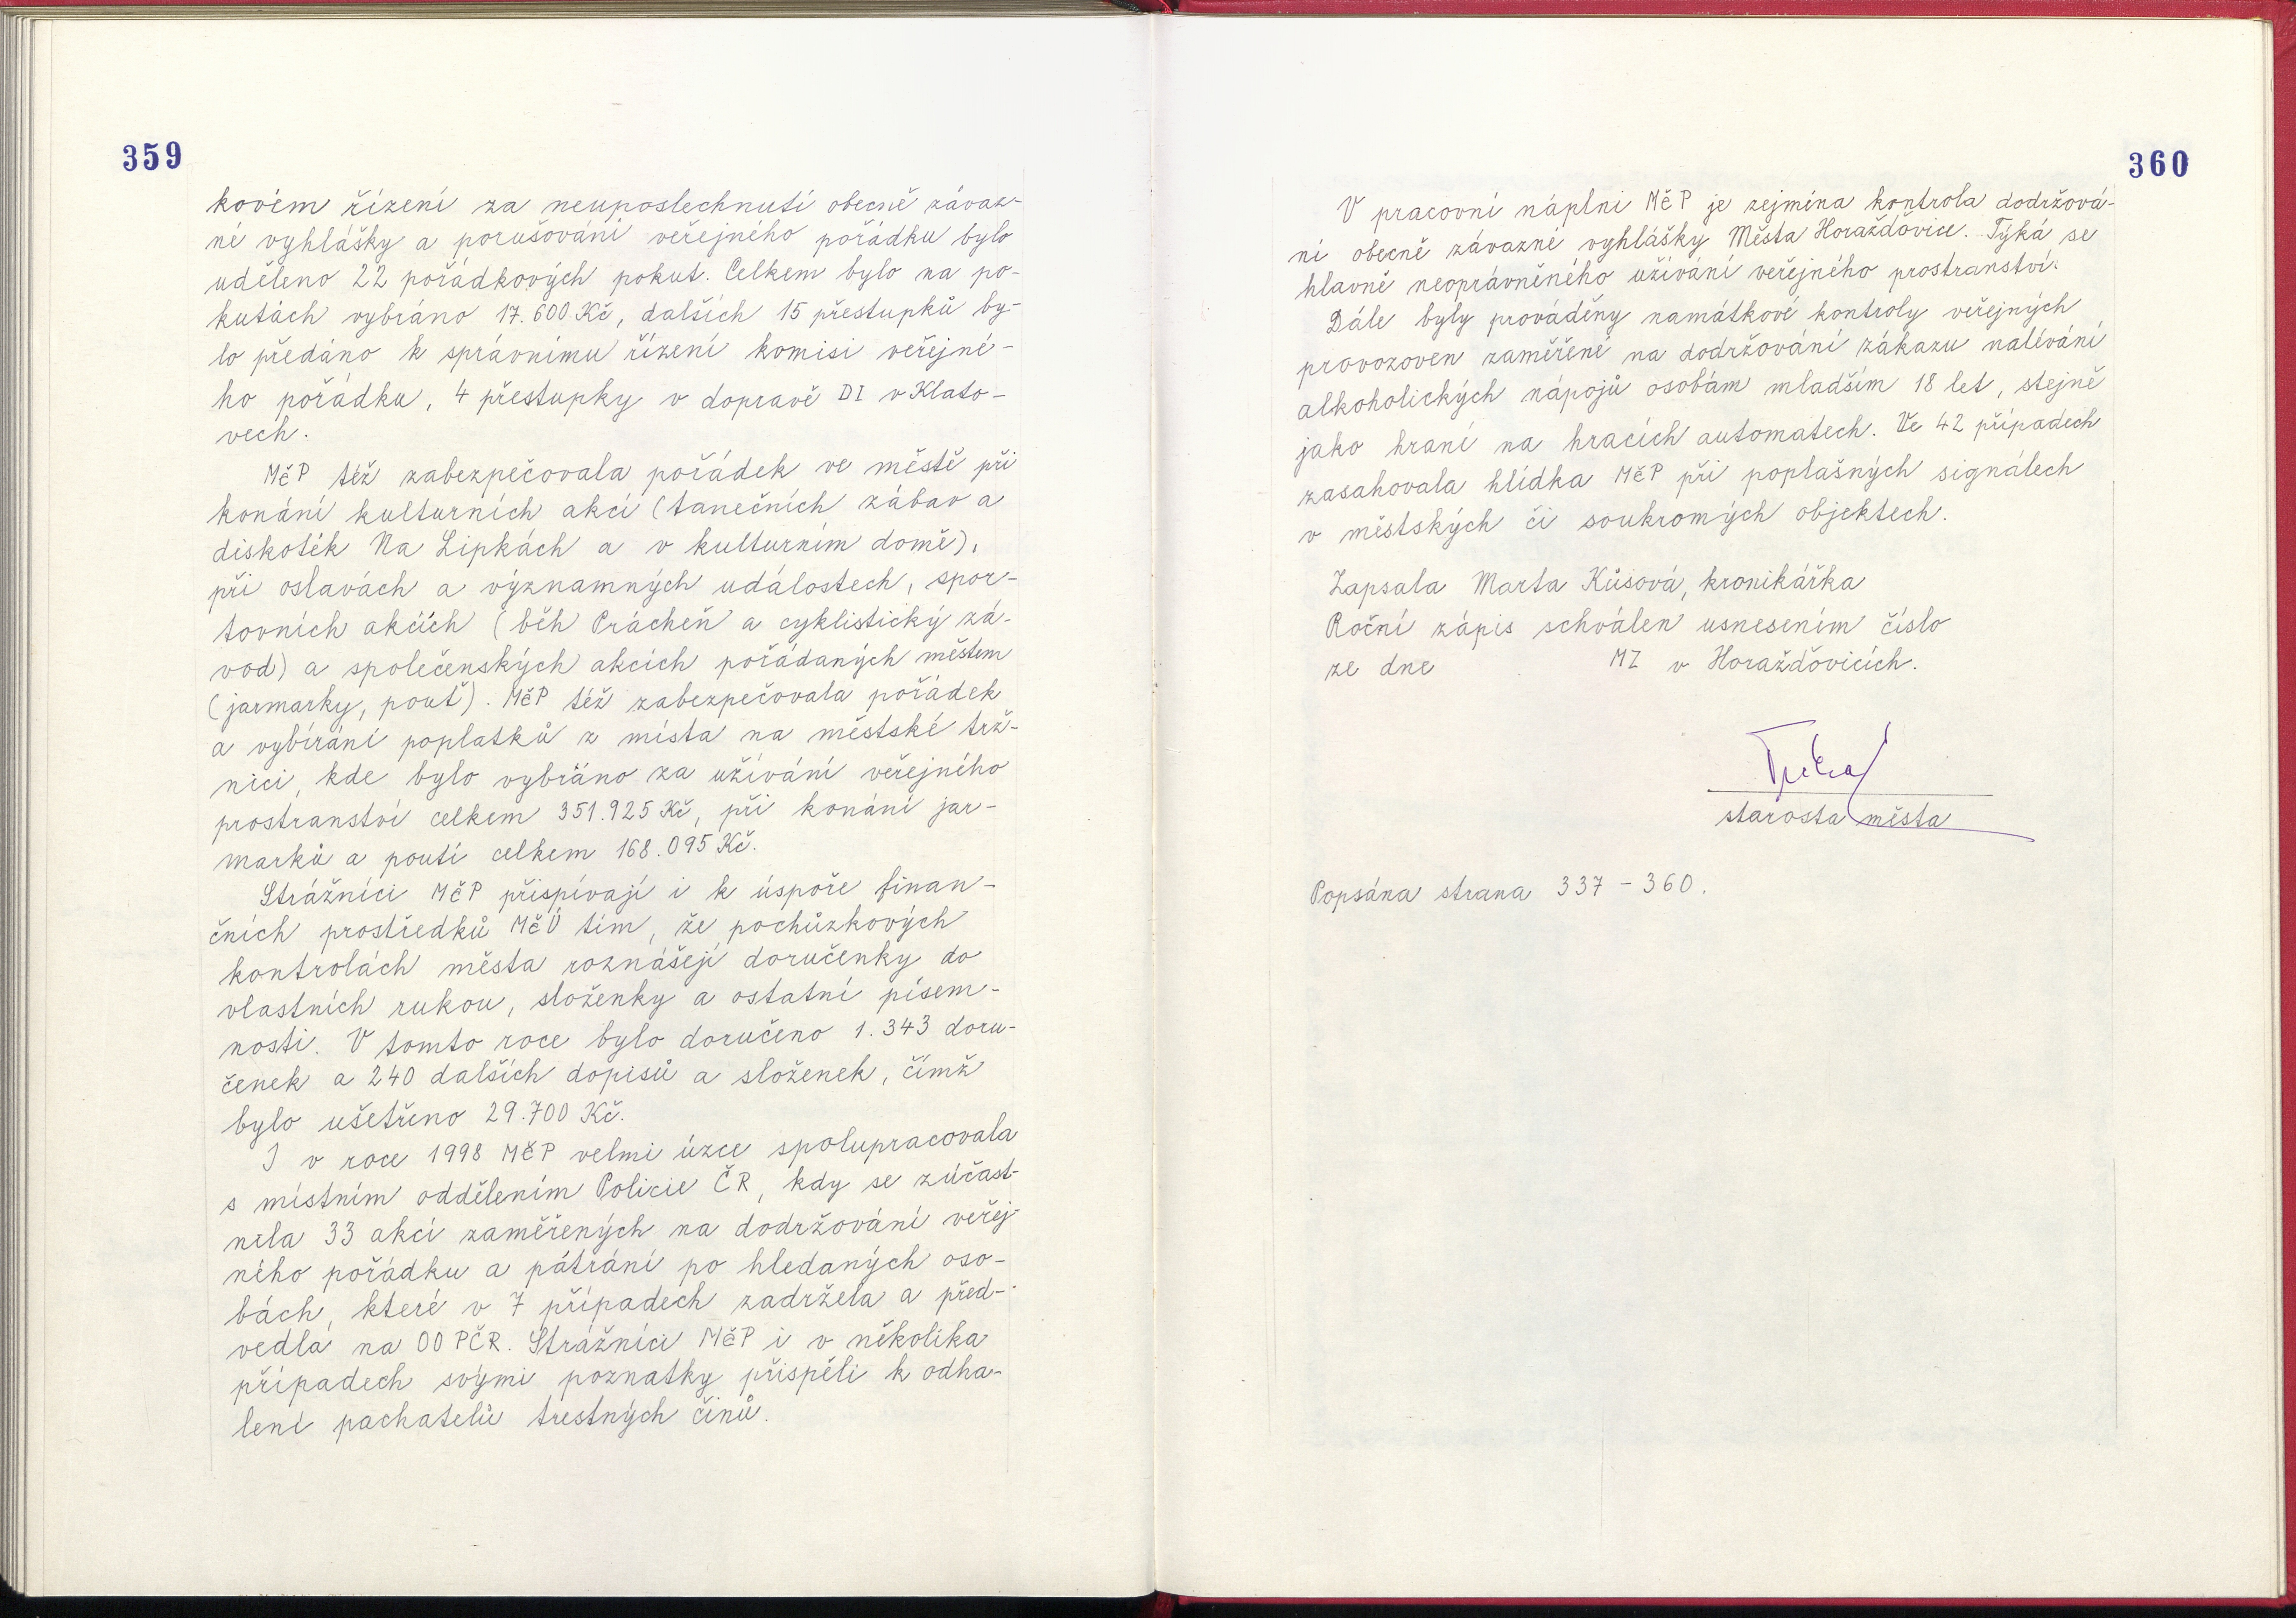 359
kovém řízení za neuposlechnutí obecně závaz-
né vyhlášky a porušování veřejného pořádku bylo
uděleno 22 pořádkových pokut. Celkem bylo na po-
kutách vybráno 17.600 Kč, dalších 15 přestupků by-
lo předáno k správnímu řízení komisi veřejné-
ho pořádku, 4 přestupky v dopravě DI v Klato-
vech.
MěP též zabezpečovala pořádek ve městě při
konání kulturních akcí (tanečních zábav a
diskoték Na Lipkách a v kulturním domě),
při oslavách a významných událostech, spor-
tovních akcích (běh Prácheň a cyklistický zá-
vod) a společenských akcích pořádaných městem
(jarmarky, pouť). MěP též zabezpečovala pořádek
a vybírání poplatků z místa na městské trž-
nici, kde bylo vybráno za užívání veřejného
prostranství celkem 351.925 Kč, při konání jar-
marků a poutí celkem 168.095 Kč.
Strážníci MěP přispívají i k úspoře finan-
čních prostředků MěÚ tím, že pochůzkových
kontrolách města roznášejí doručenky do
vlastních rukou, složenky a ostatní písem-
nosti. V tomto roce bylo doručeno 1.343 doru-
čenek a 240 dalších dopisů a složenek, čímž
bylo ušetřeno 29.700 Kč.
I v roce 1998 MěP velmi úzce spolupracovala
s místním oddělením Policie ČR, kdy se zúčast-
nila 33 akcí zaměřených na dodržování veřej-
ného pořádku a pátrání po hledaných oso-
bách, které v 7 případech zadržela a před-
vedla na OO PČR. Strážníci MěP i v několika
případech svými poznatky přispěli k odha-
lení pachatelů trestných činů.
360
V pracovní náplni MěP je zejména kontrola dodržová-
ní obecně závazné vyhlášky Města Horažďovice. Týká se
hlavně neoprávněného užívání veřejného prostranství.
Dále byly prováděny namátkové kontroly veřejných
provozoven zaměřené na dodržování zákazu nalévání
alkoholických nápojů osobám mladším 18 let, stejně
jako hraní na hracích automatech. Ve 42 případech
zasahovala hlídka MěP při poplašných signálech
v městských či soukromých objektech.
Zapsala Marta Kůsová, kronikářka
Roční zápis schválen usnesením číslo
ze dne MZ v Horažďovicích.
starosta města
Popsána strana 337 - 360.